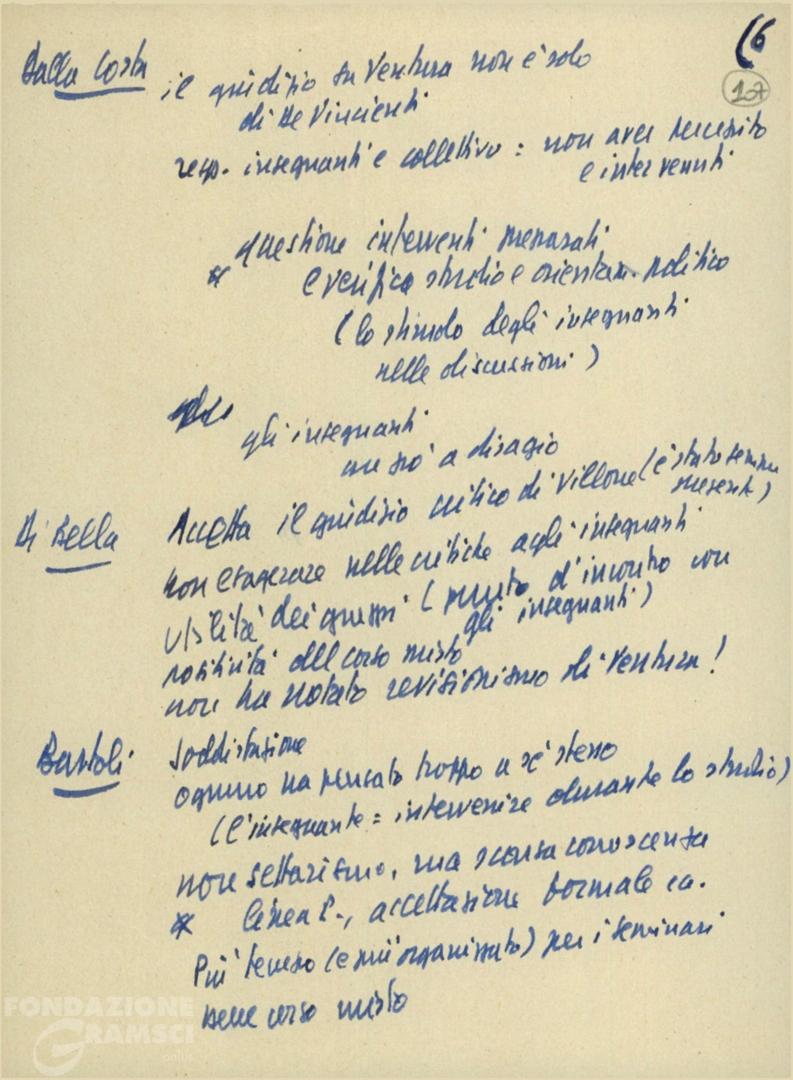 (6
17
Dalla Costa il giudizio su Ventura non è solo
di De Vincienti
resp. insegnanti e collettivo: non aver recepito
e intervenuti
* questione interventi preparati
e verifica studio e orientam. politico
(lo stimolo degli insegnanti
nelle discussioni)
gli insegnanti
un po' a disagio
Di Bella Accetta il giudizio critico di Villone (è stato sempre
presente)
non esagerare nelle critiche agli insegnanti
utilità dei gruppi (punto d'incontro con
gli insegnanti)
positività del corso misto
non ha notato revisionismo di Ventura!
Bartoli Soddisfazione
ognuno ha pensato troppo a sé stesso
(l'insegnante = intervenire durante lo studio)
non settarismo, ma scarsa conoscenza
* linea P., accettazione formale ecc.
Più tempo (e più organizzato) per i seminari
bene corso misto
FONDAZIONE
GRAMSCI
onlus